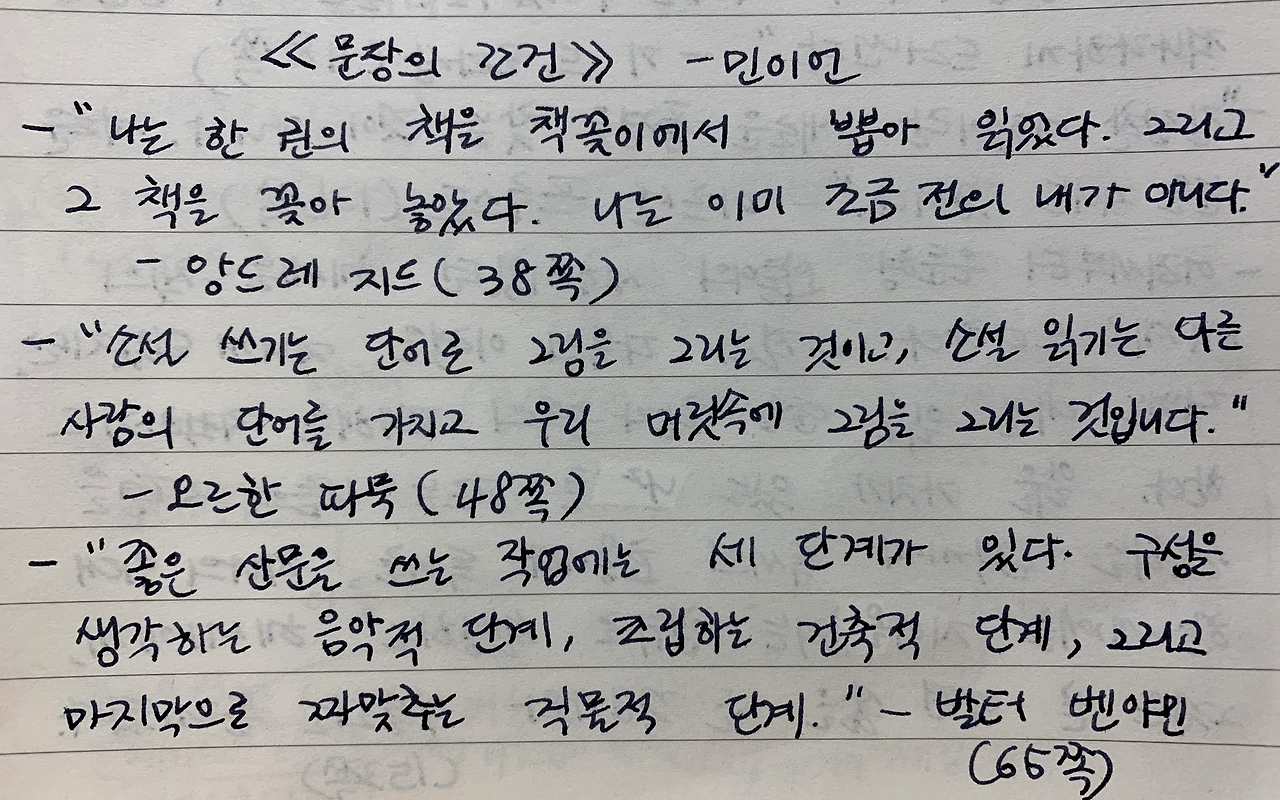 ≪문장의 조건≫ - 민이언
- "나는 한 권의 책을 책꽂이에서 뽑아 읽었다. 그리고
그 책을 꽂아 놓았다. 나는 이미 조금 전의 내가 아니다."
- 앙드레 지드 (38쪽)
- "소설 쓰기는 단어로 그림을 그리는 것이고, 소설 읽기는 다른
사람의 단어를 가지고 우리 머릿속에 그림을 그리는 것입니다."
- 오르한 파묵 (48쪽)
- "좋은 산문을 쓰는 작업에는 세 단계가 있다. 구성을
생각하는 음악적 단계, 조립하는 건축적 단계, 그리고
마지막으로 짜맞추는 직물적 단계." - 발터 벤야민
(65쪽)